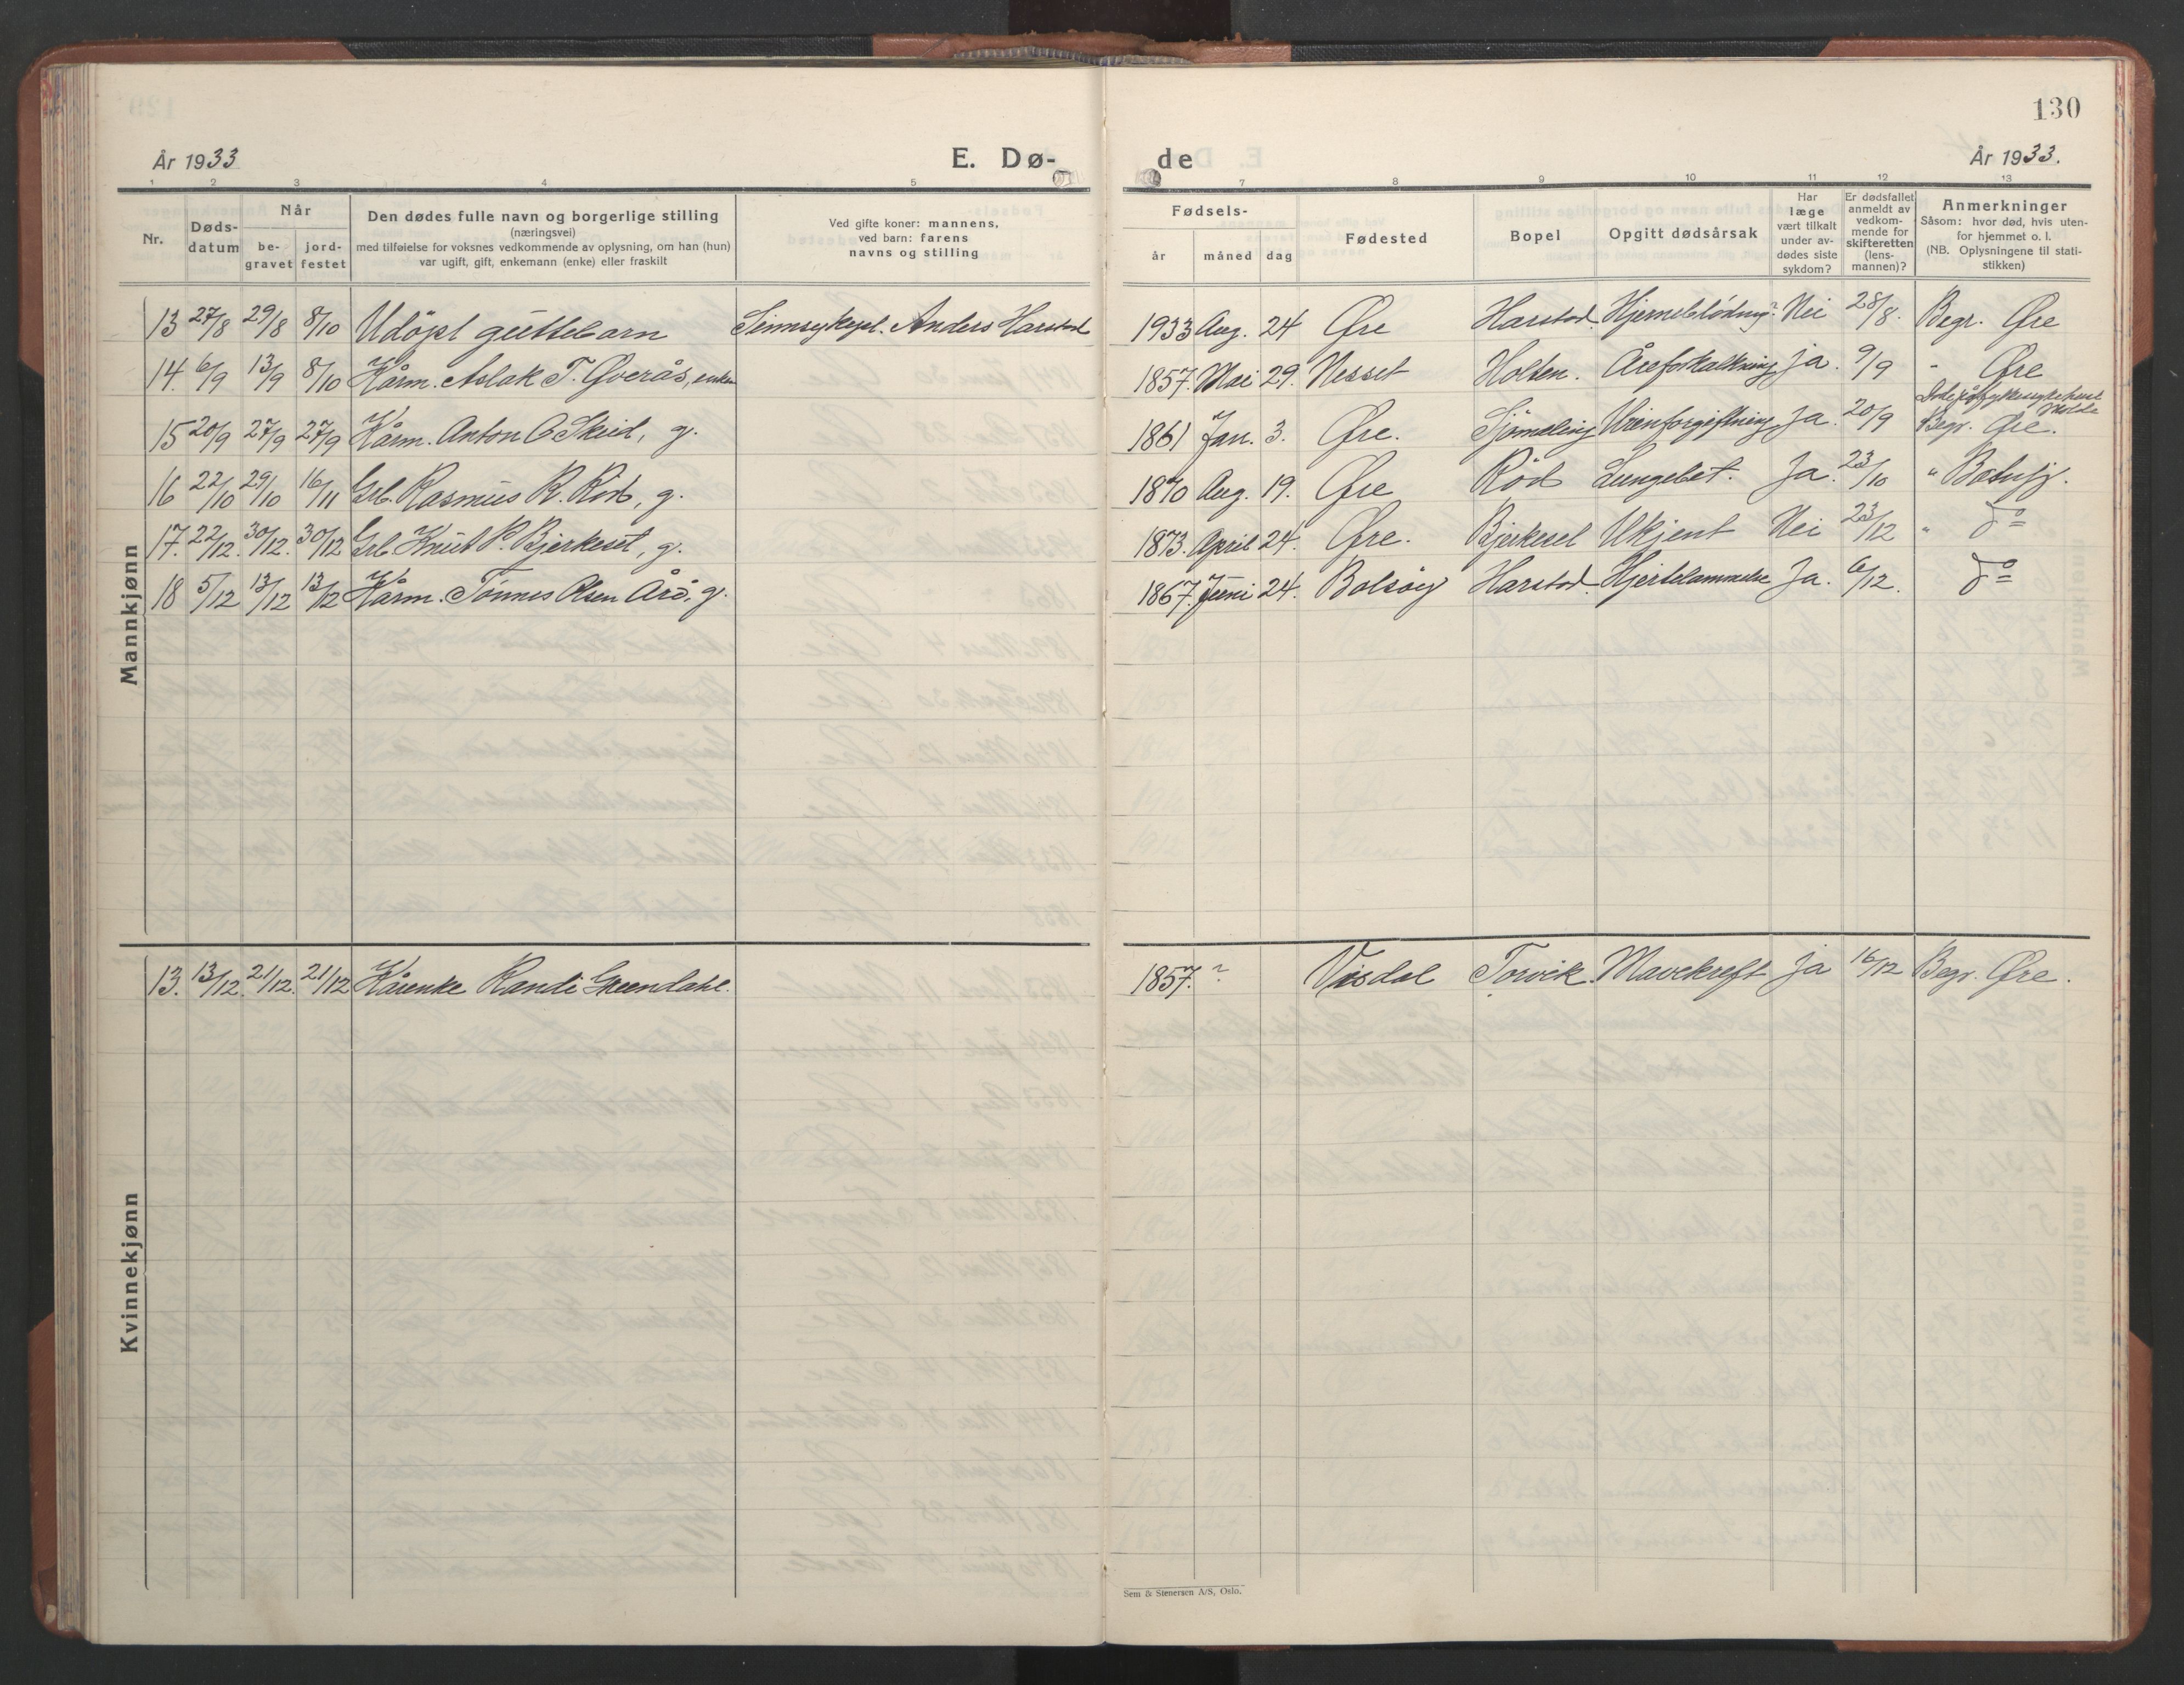 130
År 1933
E. Dø-
de
År 1933.
1 2 3 4 5
7 8 9 10 11 12 13
Nr.
Døds-
datum
Når
be-
gravet
jord-
festet
Den dødes fulle navn og borgerlige stilling
(næringsvei)
med tilføielse for voksnes vedkommende av oplysning, om han (hun)
var ugift, gift, enkemann (enke) eller fraskilt
Ved gifte koner: mannens,
ved barn: farens
navns og stilling
Fødsels-
år måned dag
Fødested
Bopel
Opgitt dødsårsak
Har
læge
vært tilkalt
under av-
dødes siste
sykdom?
Er dødsfallet
anmeldt av
vedkom-
mende for
skifteretten
(lens-
mannen)?
Anmerkninger
Såsom: hvor død, hvis uten-
for hjemmet o. l.
(NB. Oplysningene til stati-
stikken)
Mannkjønn
13 27/8 29/8 8/10 Udöpt guttebarn Sinnsykepl. Anders Harstad 1933 Aug. 24 Øre Harstad. Hjerneblödning? Nei 28/8. Begr. Øre
14. 6/9 13/9 8/10 Kårm. Aslak T. Øverås, enkem 1857. Mai 29. Nesset Holten. Åreforkalkning ja. 9/9 " Øre
15 20/9 27/9 27/9 Kårm. Anton O Skeid, g. 1861 Jan. 3. Øre. Sjömeling Urinforgiftning Ja. 20/9 Døde på fylkessykehuset Molde
Begr. Øre.
16 22/10 29/10 16/11 Grb. Rasmus R. Röd, g. 1870 Aug. 19. Øre Röd Lungebet. Ja. 23/10 " Batnfj.
17. 22/12. 30/12. 30/12 Grb. Knut P. Bjerkeset, g. 1873. April 24. Øre. Bjerkeset Ukjent Nei 23/12 " do
18 5/12 13/12 13/12 Kårm. Tönnes Olsen Årö, g. 1867. Juni 24. Bolsöy Harstad. Hjertelammelse Ja. 6/12. do
Kvinnekjønn
13. 13/12. 21/12. 21/12 Kårenke Randi Grendahl. 1857. ? Visdal Torvik. Mavekreft Ja 16/12 Begr. Øre.
Sem & Stenersen A/S, Oslo.